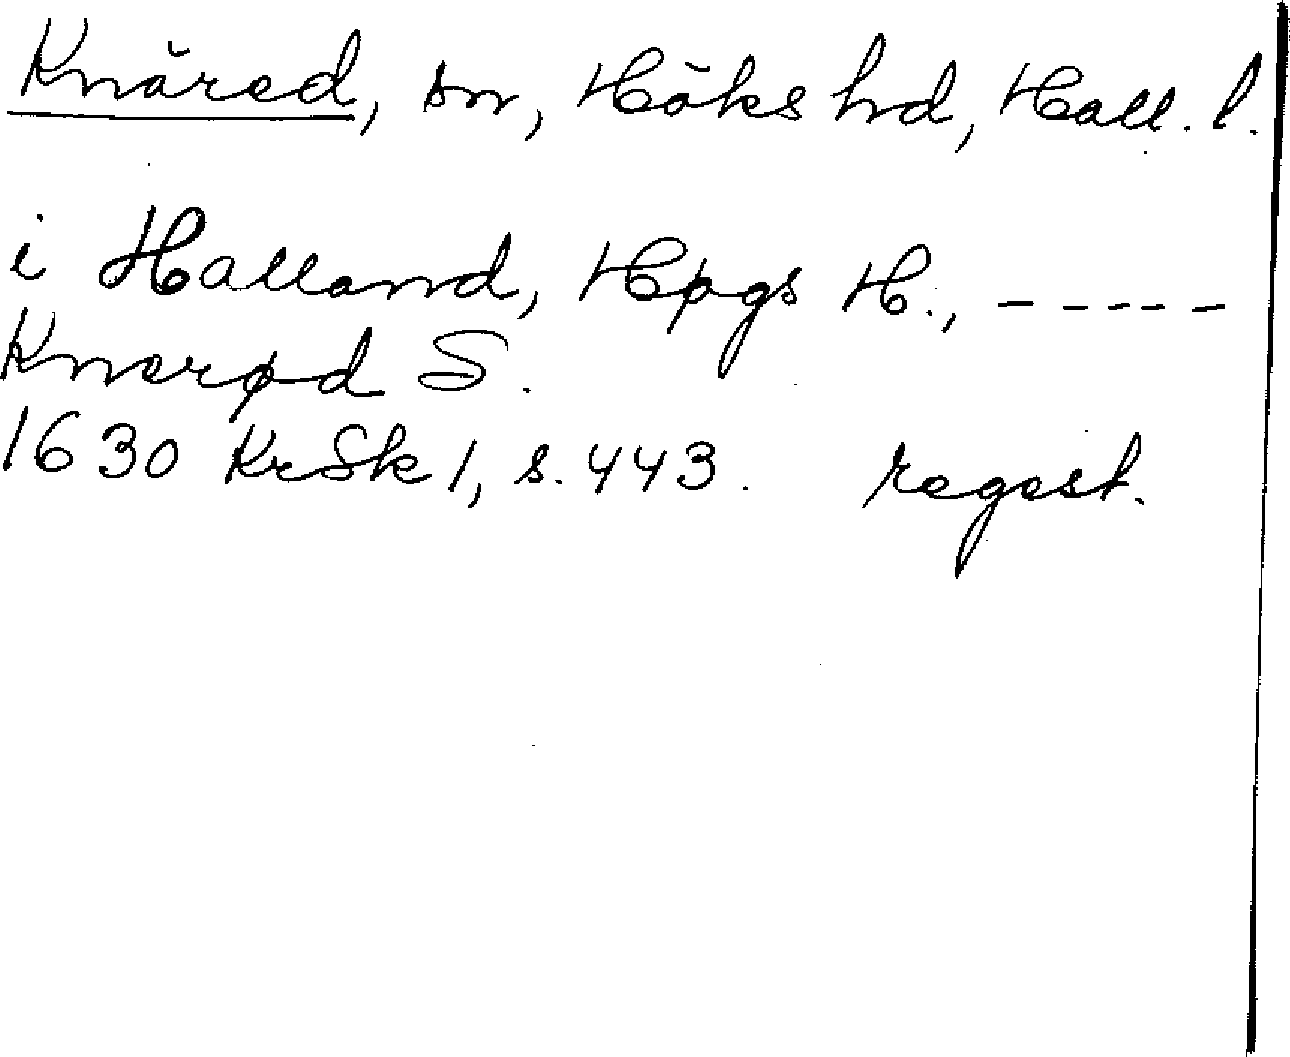 Knäred, sn, Höks hd, Hall. l.
i Halland, Høgs H., - - - - -
Knerød S.
1630 KrSk 1, s. 443. regest.